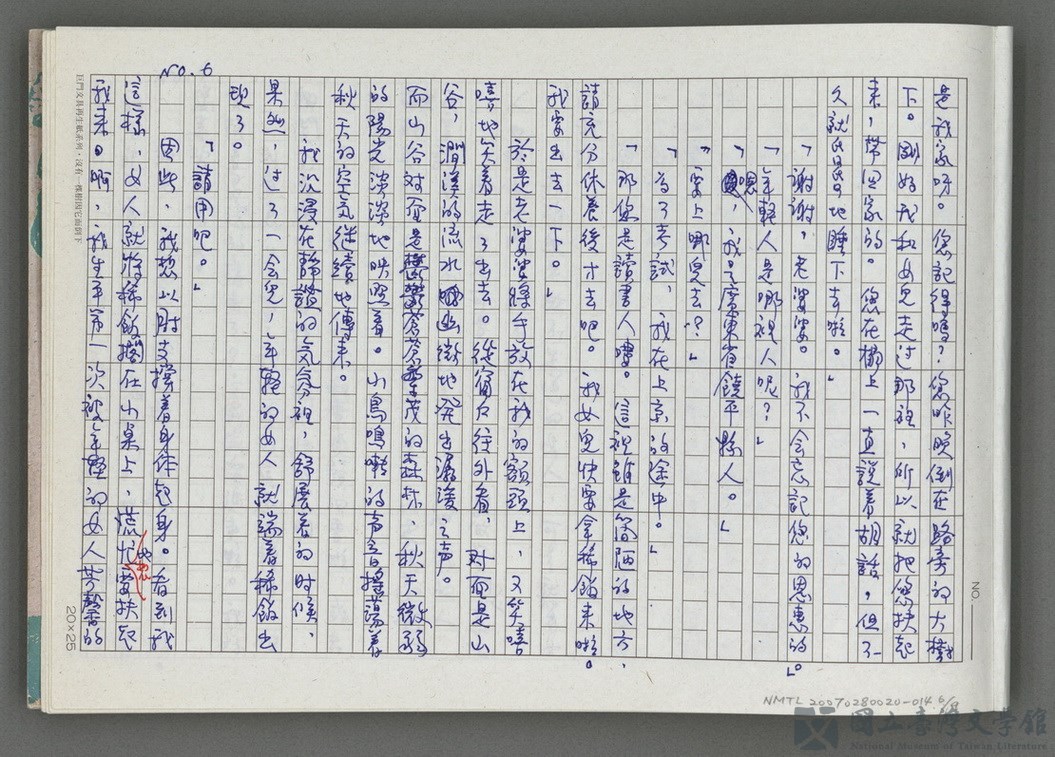 是我家呀。您記得嗎?您昨晚倒在路旁的大樹
下。剛好我和女兒走过那裡,所以就把您扶起
来,带回家的。您在櫈上一直說着胡話,但不
久就昏昏地睡下去啦。」
「謝謝,老婆婆。我不会忘記您的恩惠的。」
「年輕人是哪裡人呢?」
「嗯,我是廣東省饒平縣人。」
「要上哪兒去?」
「為了考試,我在上京的途中。」
「那您是讀書人嘍。這裡雖是簡陋的地方,
請充分休養後才去吧。我女兒快要拿稀飯来啦。
我要出去一下。」
於是老婆婆將手放在我的額頭上,又笑嘻
嘻地笑着走了出去。從窗户往外看,对面是山
谷,澗溪的流水幽微地発出潺湲之声。
而山谷对面是鬱鬱蒼蒼茂的森林,秋天微弱
的陽光淡淡地映照着。小鳥鳴囀的声音搖蕩着
秋天的空氣継續地傳来。
我沉浸在靜謐的气氛裡,舒展着的时候,
果然,过了一会兒,年輕的女人就端着稀飯出
現了。
「請用吧。」
因此,我想以肘支撐着身体起身。看到我
這樣,女人就將稀飯擱在小桌上,慌忙地要扶起
我来。啊,我生平第一次被年輕的女人芳馨的
NO. 6
NO.
巨門文具再生紙系列・沒有一棵樹因它而倒下
20×25
NMTL 20070280020-014 6/
國立臺灣文學館
National Museum of Taiwan Literature